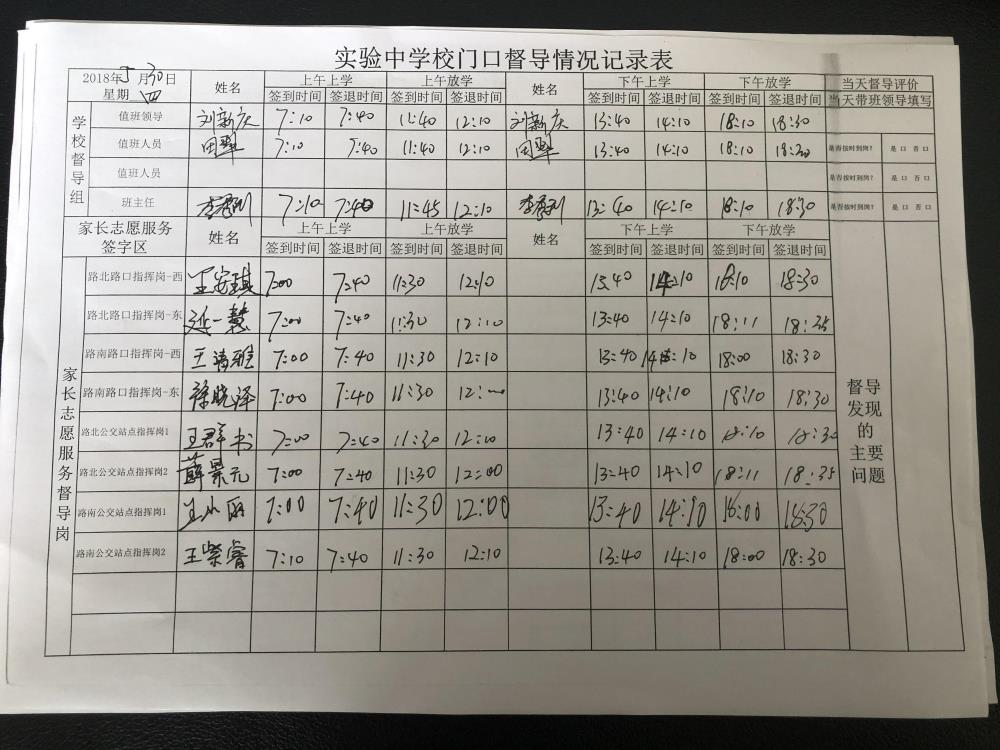 实验中学校门口督导情况记录表
2018年5月30日 姓名 上午上学 上午放学 姓名 下午上学 下午放学 当天督导评价
星期四 签到时间 签退时间 签到时间 签退时间 签到时间 签退时间 签到时间 签退时间 当天带班领导填写
学校督导组
值班领导 刘新庆 7:10 7:40 11:40 12:10 刘新庆 13:40 14:10 18:10 18:30
值班人员 7:10 7:40 11:40 12:10 13:40 14:10 18:10 18:30 是否按时到岗? 是口 否口
值班人员 是否按时到岗? 是口 否口
班主任 7:10 7:40 11:45 12:10 13:40 14:10 18:10 18:30 是否按时到岗? 是口 否口
家长志愿服务签字区 姓名 上午上学 上午放学 姓名 下午上学 下午放学
签到时间 签退时间 签到时间 签退时间 签到时间 签退时间 签到时间 签退时间
家长志愿服务督导岗
路北路口指挥岗-西 王安琪 7:00 7:40 11:30 12:10 13:40 14:10 18:10 18:30
路北路口指挥岗-东 延一慧 7:00 7:40 11:30 12:10 13:40 14:10 18:11 18:35
路南路口指挥岗-西 王清雅 7:00 7:40 11:30 12:10 13:40 14:10 18:00 18:30
路南路口指挥岗-东 徐晓泽 7:00 7:40 11:30 12:00 13:40 14:10 18:10 18:30
路北公交站点指挥岗1 王群书 7:00 7:40 11:30 12:00 13:40 14:10 18:10 18:30
路北公交站点指挥岗2 薛景元 7:00 7:40 11:30 12:00 13:40 14:10 18:11 18:35
路南公交站点指挥岗1 7:00 7:40 11:30 12:00 13:40 14:10 18:00 18:30
路南公交站点指挥岗2 王紫睿 7:10 7:40 11:30 12:10 13:40 14:10 18:00 18:30
督导发现的主要问题